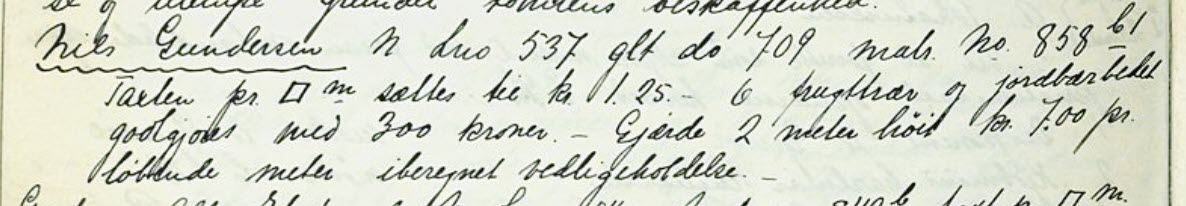 se og grunder tomtens beskaffenhed.
Nils Gundersen N Lno 537 glt do 709 matr. No. 858 b1
Taxten pr. □ m sættes til kr. 1.25.- 6 frugttrær og jordbærbedet
godtgjøres med 300 kroner. - Gjærde 2 meter høit kr. 7.00 pr.
løbende meter iberegnet vedligeholdelse. -
□ m.